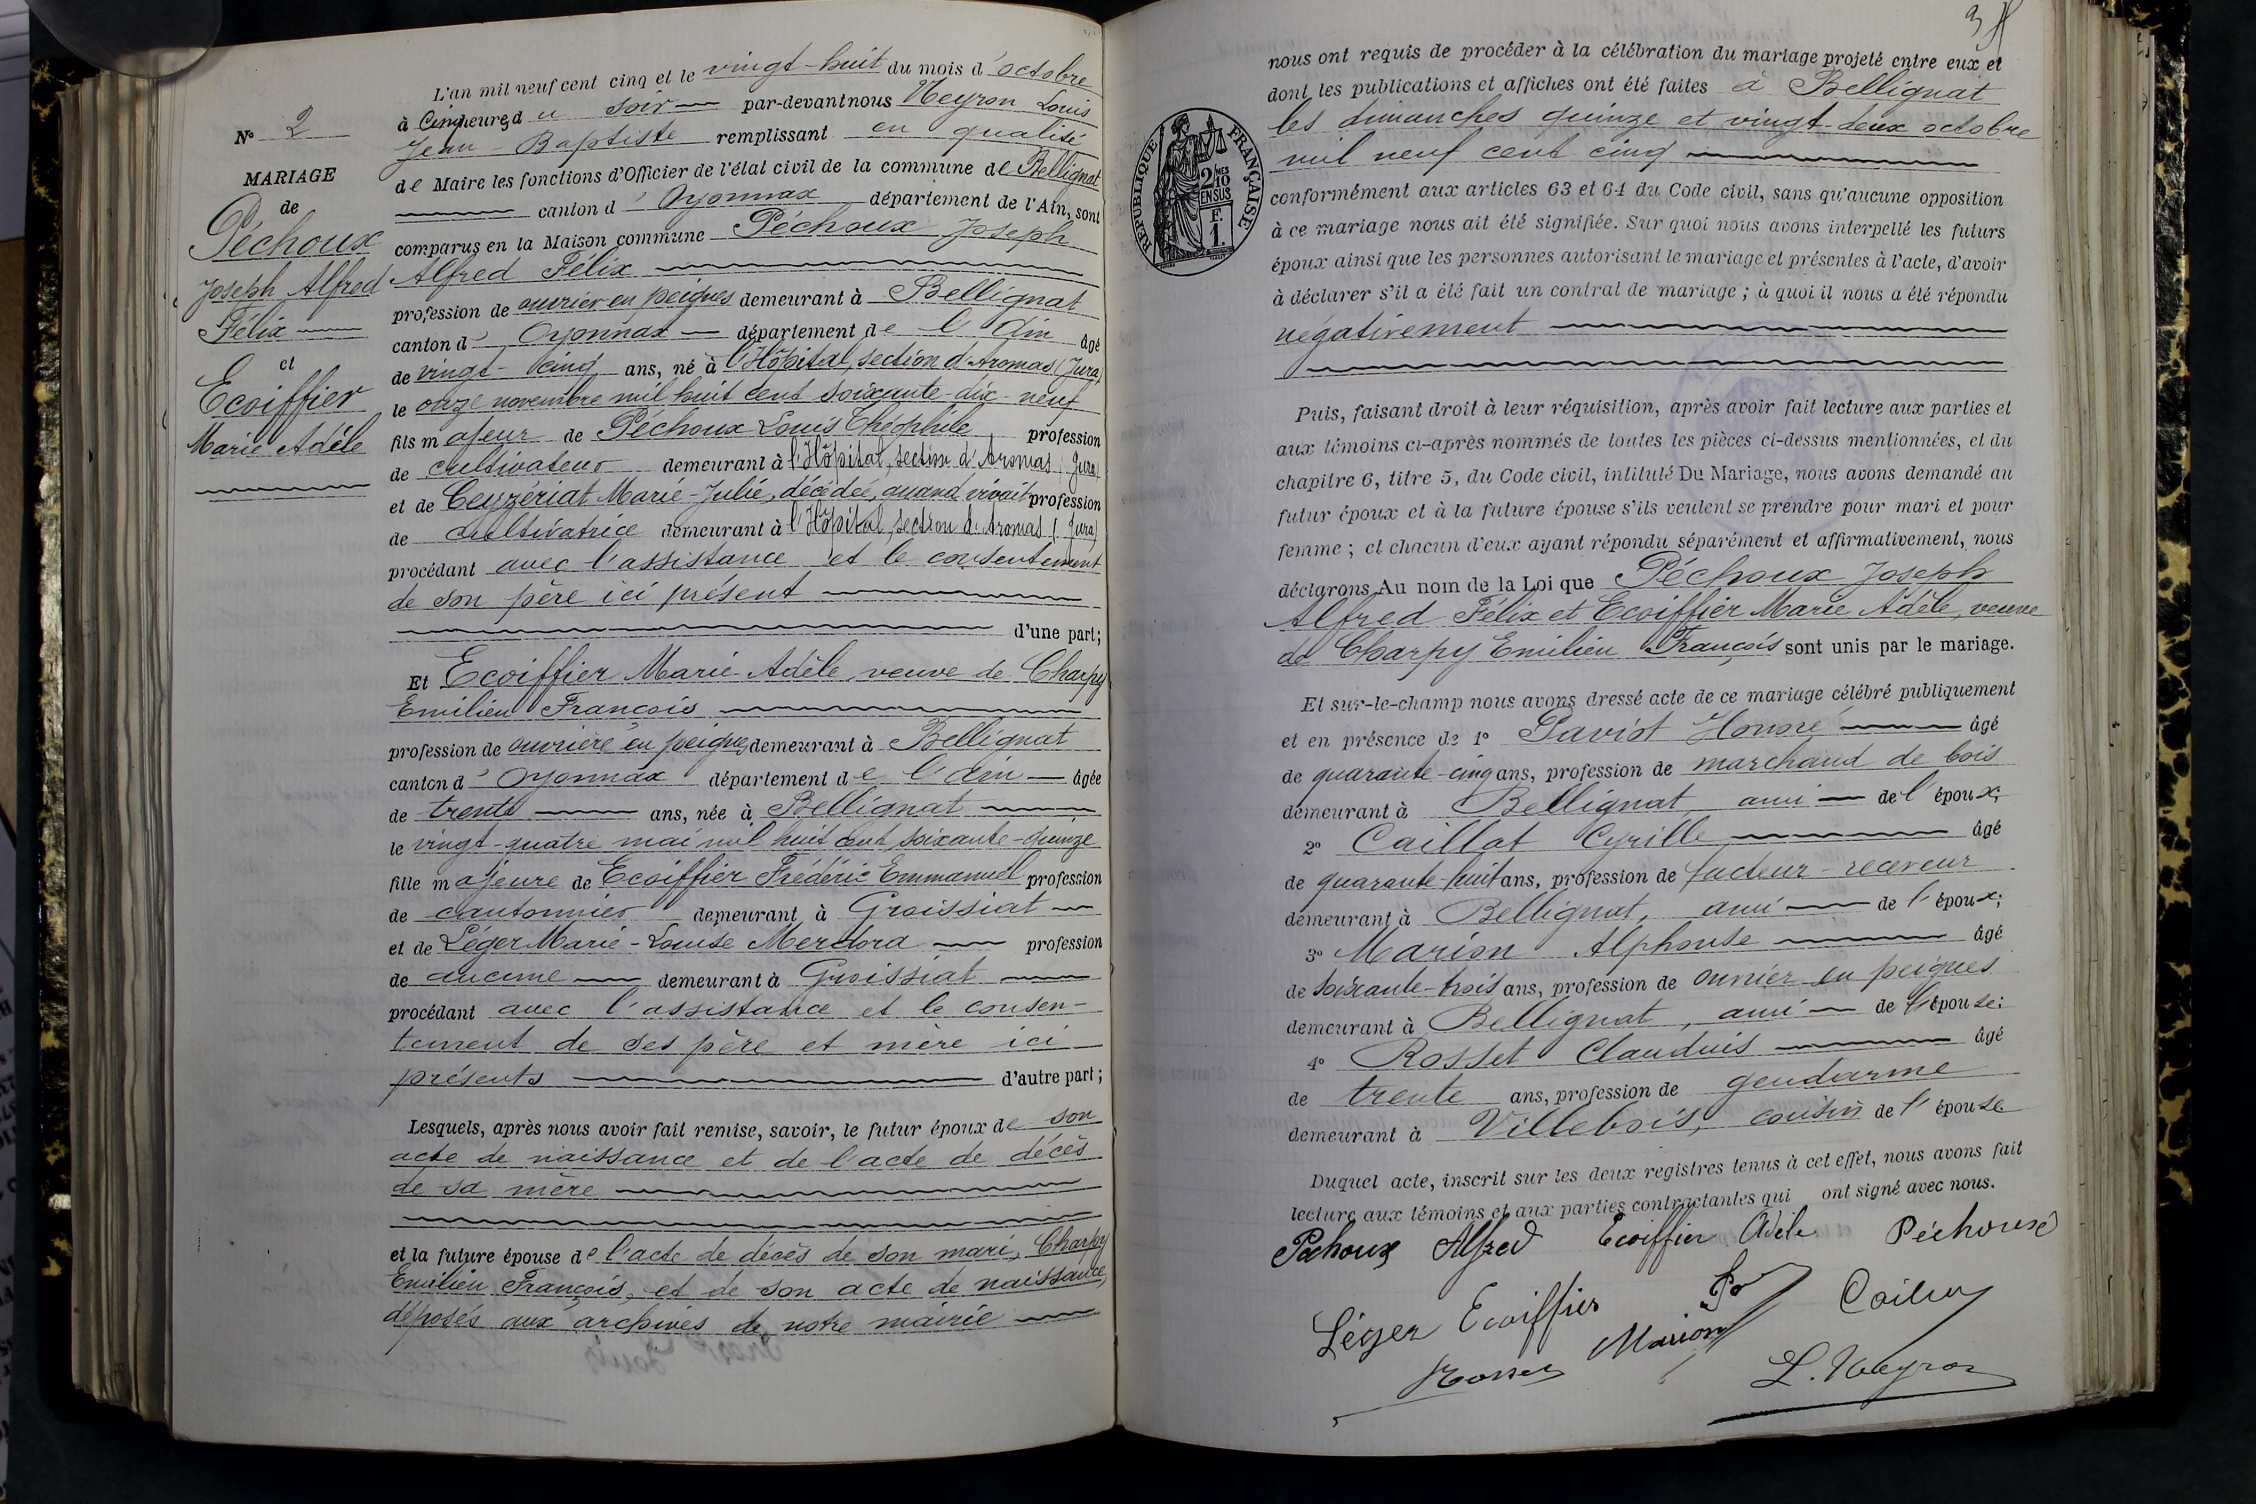 L'an mil neuf cent cinq et le vingt-huit du mois d'octobre
à cinq heures du soir par-devant nous Neyron Louis
Jean-Baptiste remplissant en qualité
de Maire les fonctions d'Officier de l'état civil de la commune de Bellignat
canton d'Oyonnax département de l'Ain, sont
comparus en la Maison commune Péchoux Joseph
Alfred Félix
profession de ouvrier en peignes demeurant à Bellignat
canton d'Oyonnax département de l'Ain âgé
de vingt-cinq ans, né à l'Hôpital, section d'Aromas (Jura)
le onze novembre mil huit cent soixante-dix-neuf
fils majeur de Péchoux Louis Théophile profession
de cultivateur demeurant à l'Hôpital, section d'Aromas (Jura)
et de Ceyzériat Marie-Julie, décédée, quand vivait profession
de cultivatrice demeurant à l'Hôpital, section d'Aromas (Jura)
procédant avec l'assistance et le consentement
de son père ici présent
d'une part;
Et Ecoiffier Marie-Adèle veuve de Charpy
Emilien François
profession de ouvrière en peignes demeurant à Bellignat
canton d'Oyonnax département de l'Ain âgée
de trente ans, née à Bellignat
le vingt-quatre mai mil huit cent soixante-quinze
fille majeure de Ecoiffier Frédéric Emmanuel profession
de cantonnier demeurant à Groissiat
et de Léger Marie-Louise profession
de aucune demeurant à Groissiat
procédant avec l'assistance et le consen-
tement de ses père et mère ici
présents d'autre part;
Lesquels, après nous avoir fait remise, savoir, le futur époux de son
acte de naissance et de l'acte de décès
de sa mère
et la future épouse de l'acte de décès de son mari, Charpy
Emilien François, et de son acte de naissance,
déposés aux archives de notre mairie
N° 2
MARIAGE
de
Péchoux
Joseph Alfred
Félix
et
Ecoiffier
Marie Adèle
3
nous ont requis de procéder à la célébration du mariage projeté entre eux et
dont les publications et affiches ont été faites à Bellignat
les dimanches quinze et vingt-deux octobre
mil neuf cent cinq
RÉPUBLIQUE FRANÇAISE
2 MES
10
EN SUS
F.
1.
conformément aux articles 63 et 64 du Code civil, sans qu'aucune opposition
à ce mariage nous ait été signifiée. Sur quoi nous avons interpellé les futurs
époux ainsi que les personnes autorisant le mariage et présentes à l'acte, d'avoir
à déclarer s'il a été fait un contrat de mariage; à quoi il nous a été répondu
négativement
Puis, faisant droit à leur réquisition, après avoir fait lecture aux parties et
aux témoins ci-après nommés de toutes les pièces ci-dessus mentionnées, et du
chapitre 6, titre 5, du Code civil, intitulé Du Mariage, nous avons demandé au
futur époux et à la future épouse s'ils veulent se prendre pour mari et pour
femme; et chacun d'eux ayant répondu séparément et affirmativement, nous
déclarons Au nom de la Loi que Péchoux Joseph
Alfred Félix et Ecoiffier Marie Adèle, veuve
de Charpy Emilien François sont unis par le mariage.
Et sur-le-champ nous avons dressé acte de ce mariage célébré publiquement
et en présence de 1° Saviot Honoré âgé
de quarante-cinq ans, profession de marchand de bois
demeurant à Bellignat, ami de l'époux;
2° Caillat Cyrille âgé
de quarante-huit ans, profession de facteur-receveur
demeurant à Bellignat, ami de l'époux;
3° Marion Alphonse âgé
de soixante-trois ans, profession de ouvrier en peignes
demeurant à Bellignat, ami de l'épouse;
4° Rosset Claudius âgé
de trente ans, profession de gendarme
demeurant à Villebois, cousin de l'épouse
Duquel acte, inscrit sur les deux registres tenus à cet effet, nous avons fait
lecture aux témoins et aux parties contractantes qui ont signé avec nous.
Péchoux Alfred Ecoiffier Adèle Péchoux
Léger Ecoiffier
Marion
Rosset L. Neyron